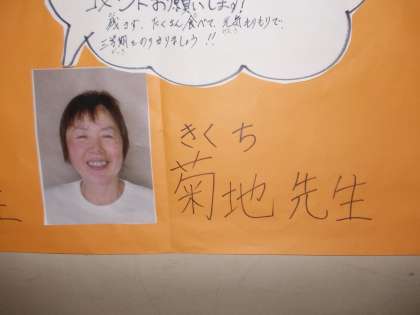 コメントお願いします!
残さず、たくさん食べて、元気もりもりで、
三学期ものりきりましょう!!
きくち
菊地 先生
生